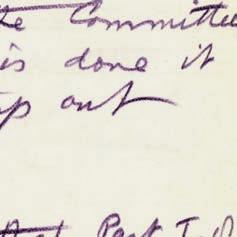 the Committee
is done it
up out
Part I